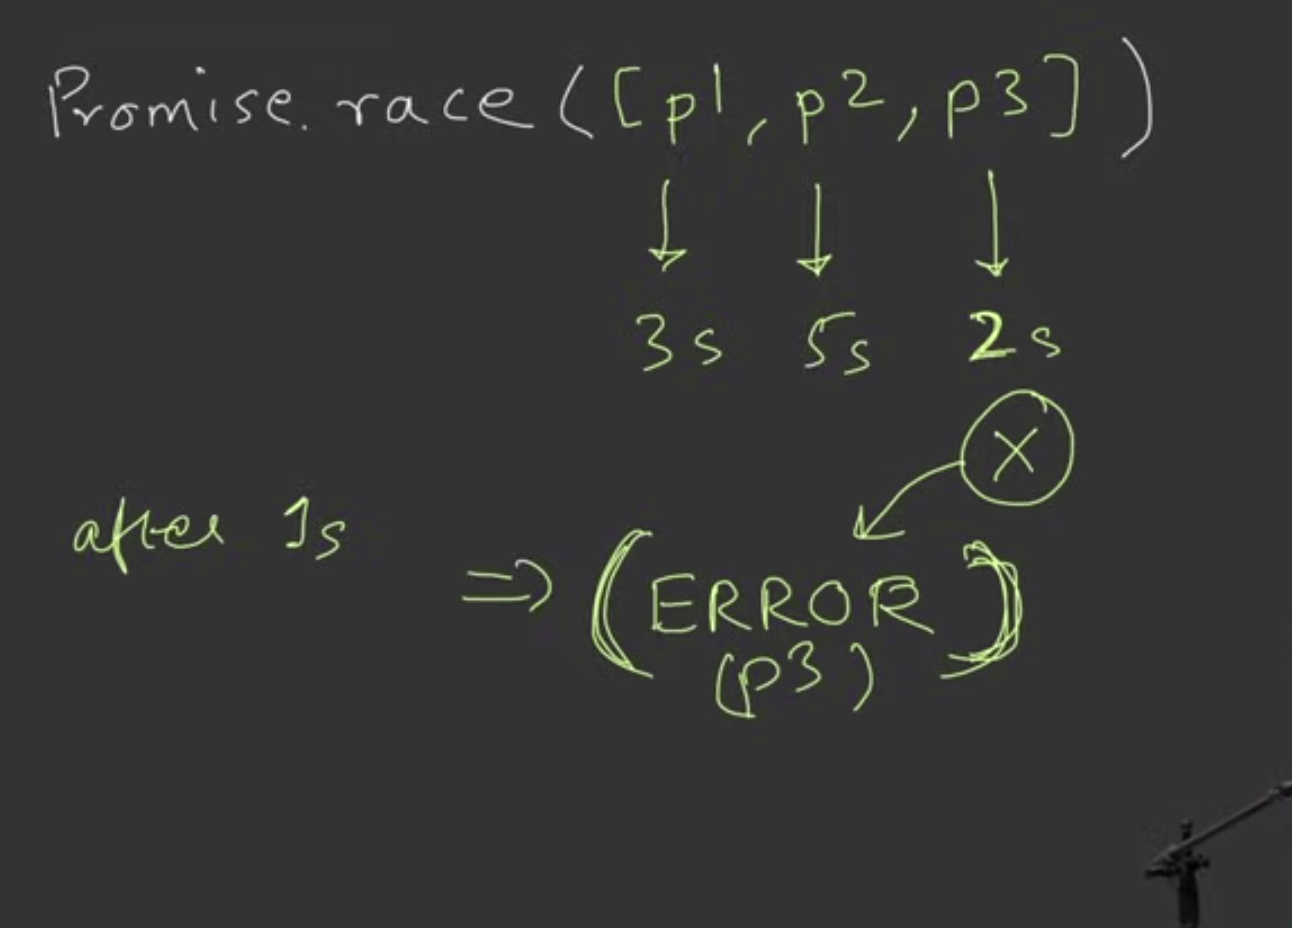 Promise.race([p1, p2, p3])
↓ ↓ ↓
3s 5s 2s
X
after 1s
=> (ERROR)
(p3)